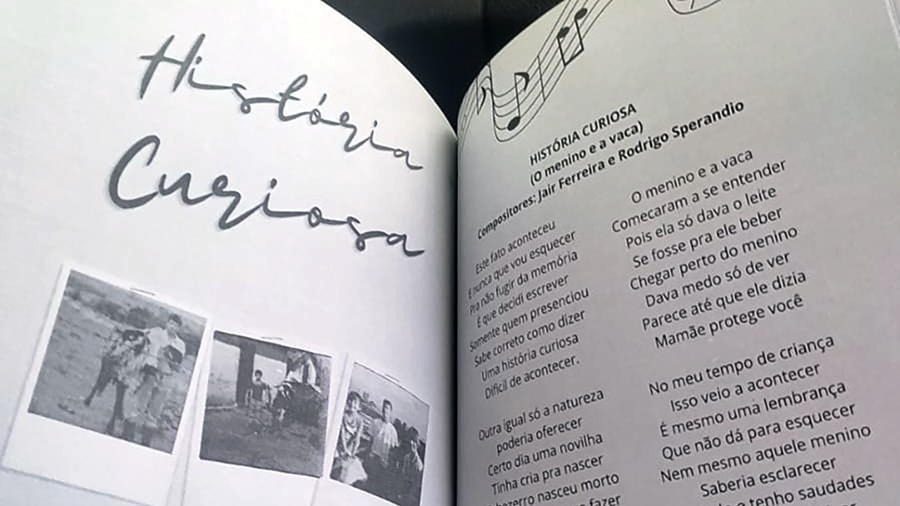 História
Curiosa
HISTÓRIA CURIOSA
(O menino e a vaca)
Compositores: Jair Ferreira e Rodrigo Sperandio
Este fato aconteceu
E nunca que vou esquecer
Pra não fugir da memória
É que decidi escrever
Somente quem presenciou
Sabe correto como dizer
Uma história curiosa
Difícil de acontecer.
Outra igual só a natureza
poderia oferecer
Certo dia uma novilha
Tinha cria pra nascer
bezerro nasceu morto
fazer
O menino e a vaca
Comecaram a se entender
Pois ela só dava o leite
Se fosse pra ele beber
Chegar perto do menino
Dava medo só de ver
Parece até que ele dizia
Mamãe protege você
No meu tempo de criança
Isso veio a acontecer
É mesmo uma lembrança
Que não dá para esquecer
Nem mesmo aquele menino
Saberia esclarecer
e tenho saudades